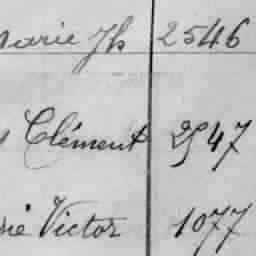 Marie Jh 2546
Clément 2547
Victor 1077